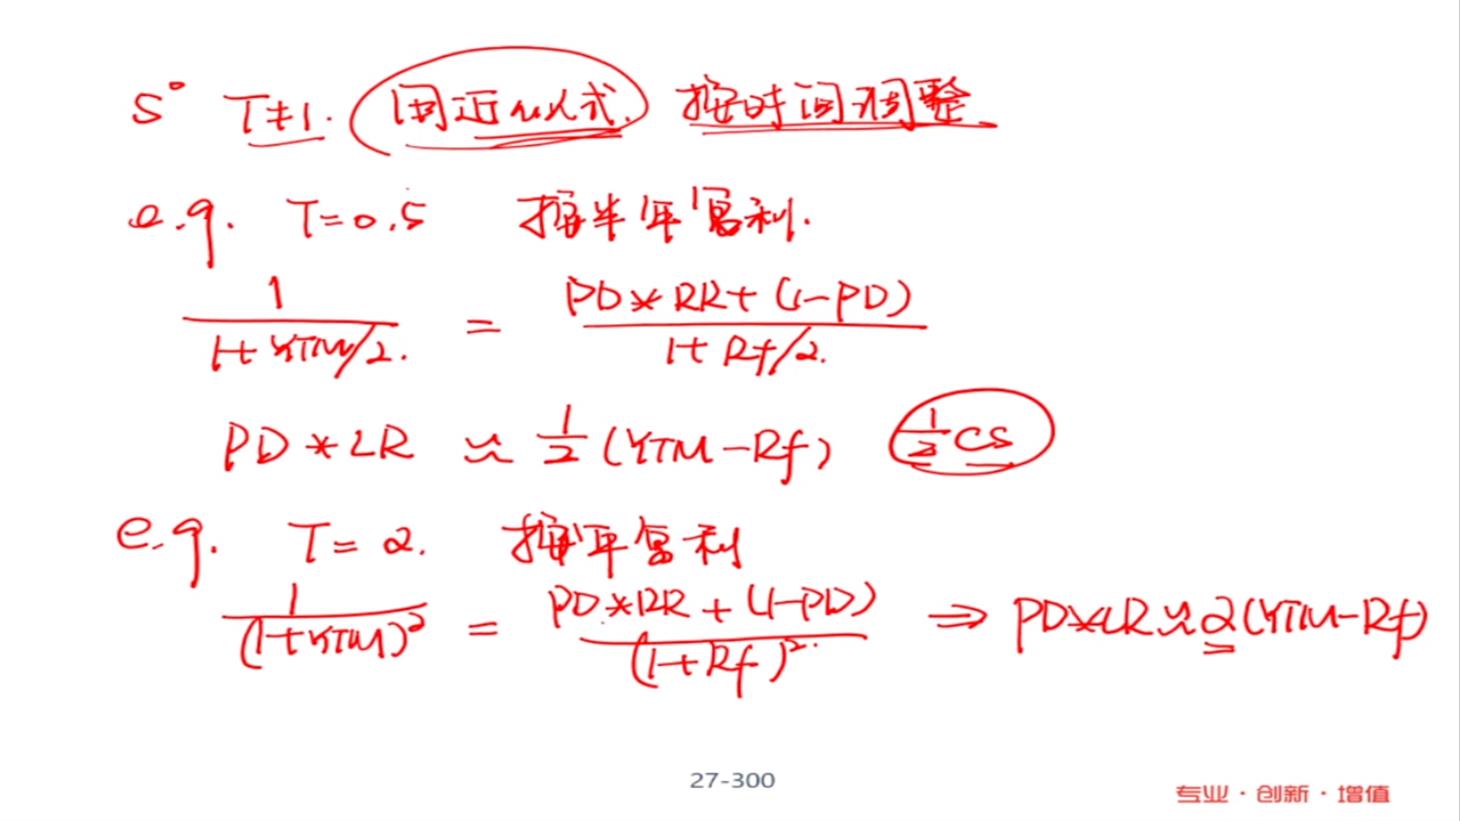 5° T≠1. 用近似公式. 按时间调整.
e.g. T=0.5 按半年复利.
1/(1+YTM/2.) = (PD*RR+(1-PD))/(1+Rf/2.)
PD*LR ≈ 1/2(YTM-Rf) 1/2CS
e.g. T=2. 按年复利
1/(1+YTM)² = (PD*RR+(1-PD))/(1+Rf)². ⇒ PD*LR≈2(YTM-Rf)
27-300
专业·创新·增值